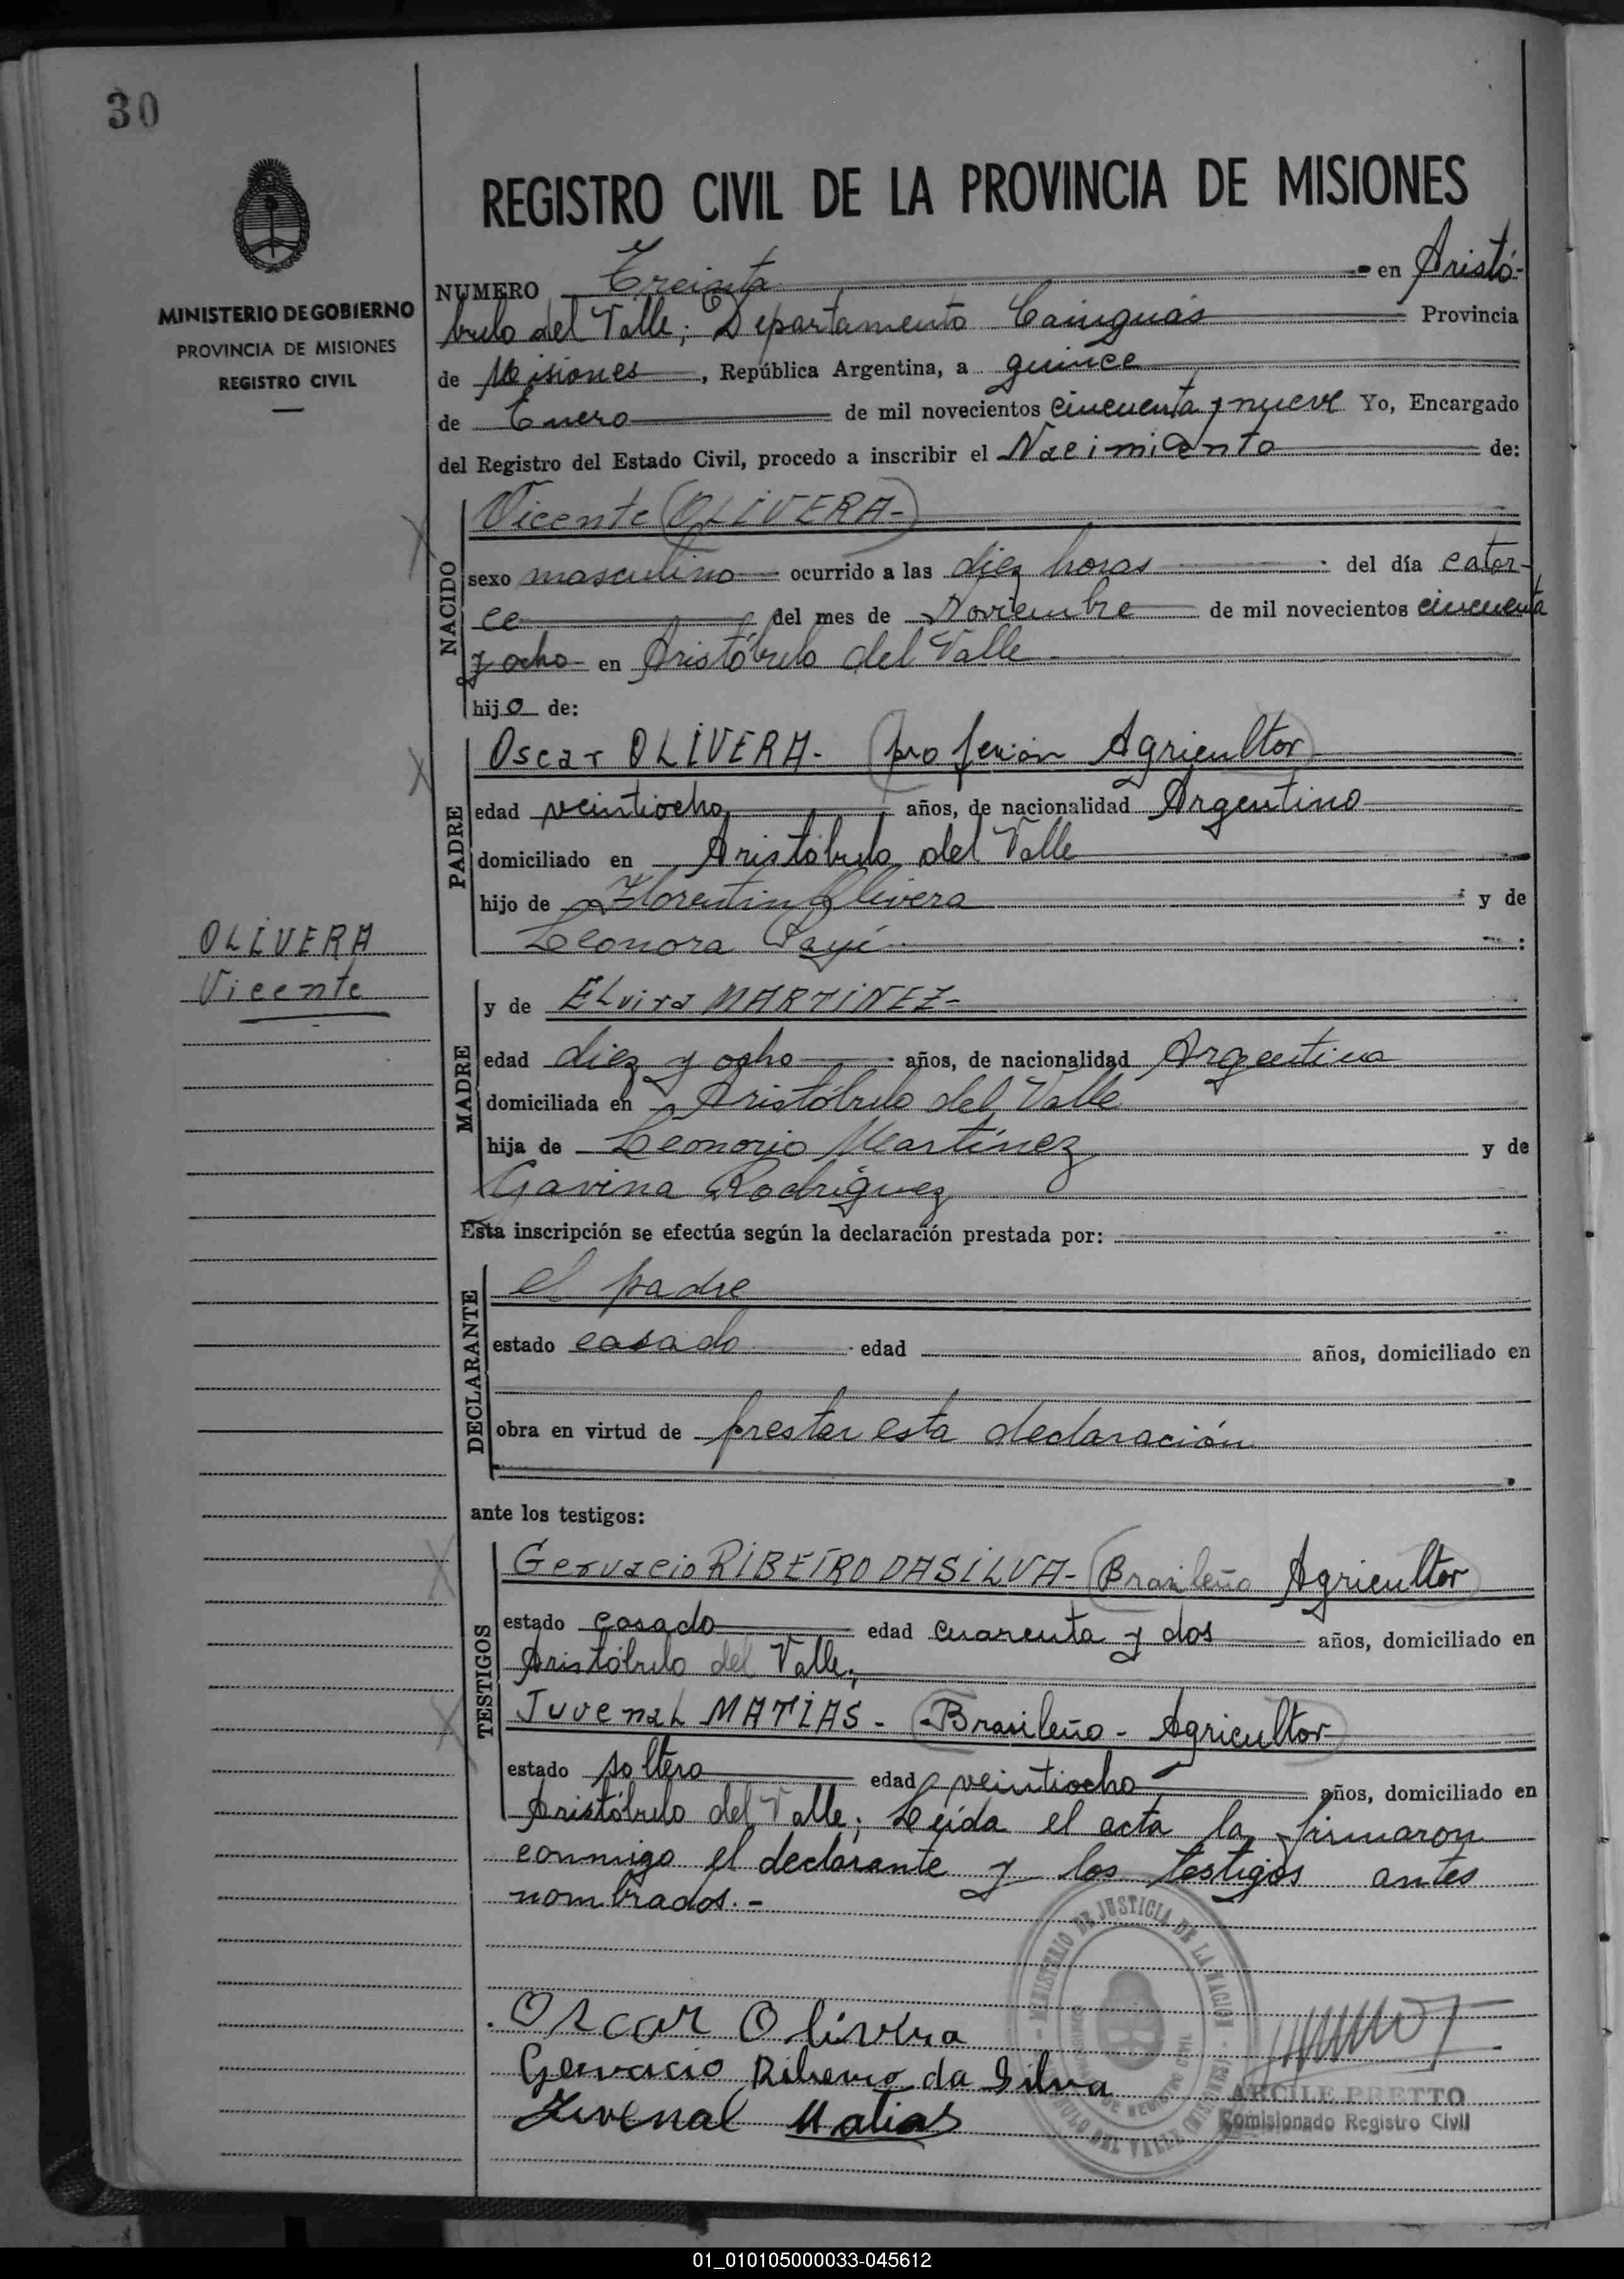 30
REGISTRO CIVIL DE LA PROVINCIA DE MISIONES
MINISTERIO DE GOBIERNO
PROVINCIA DE MISIONES
REGISTRO CIVIL
NUMERO Treinta en Aristó-
bulo del Valle; Departamento Cainguás Provincia
de Misiones, República Argentina, a quince
de Enero de mil novecientos cincuenta y nueve Yo, Encargado
del Registro del Estado Civil, procedo a inscribir el Nacimiento de:
NACIDO
Vicente (OLIVERA-)
sexo masculino ocurrido a las diez horas del día cator-
ce del mes de Noviembre de mil novecientos cincuenta
y ocho en Aristóbulo del Valle
hijo de:
PADRE
Oscar OLIVERA- (profesión Agricultor)
edad veintiocho años, de nacionalidad Argentino
domiciliado en Aristóbulo del Valle
hijo de Florentin Olivera y de
Leonora Payé :
OLIVERA
Vicente
MADRE
y de ELvira MARTINEZ-
edad diez y ocho años, de nacionalidad Argentina
domiciliada en Aristóbulo del Valle
hija de Leonorio Martínez y de
Gavina Rodríguez
Esta inscripción se efectúa según la declaración prestada por:
DECLARANTE
el padre
estado casado edad años, domiciliado en
obra en virtud de prestar esta declaración
ante los testigos:
TESTIGOS
Gervacio RIBEIRO DASILVA- (Brasileño Agricultor)
estado casado edad cuarenta y dos años, domiciliado en
Aristóbulo del Valle;
JuvenaL MATIAS- (-Brasileño- Agricultor)
estado soltero edad veintiocho años, domiciliado en
Aristóbulo del Valle; Leída el acta la firmaron
conmigo el declarante y los testigos antes
nombrados.-
MINISTERIO DE JUSTICIA DE LA NACION
Oscar Olivera
Gervacio Ribeiro da Silva
Juvenal Matias
ARCILE PRETTO
Comisionado Registro Civil
01_010105000033-045612